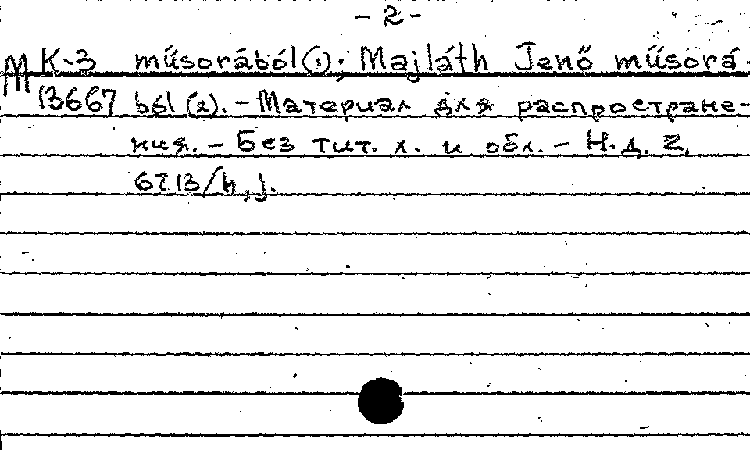 - 2 -
М К-3 műsorából (1); Majláth Jenő műsorá-
13667 ból (2). - Материал для распростране-
ния. - Без тит. л. и обл. - Н. д. 2,
6713/h, j.